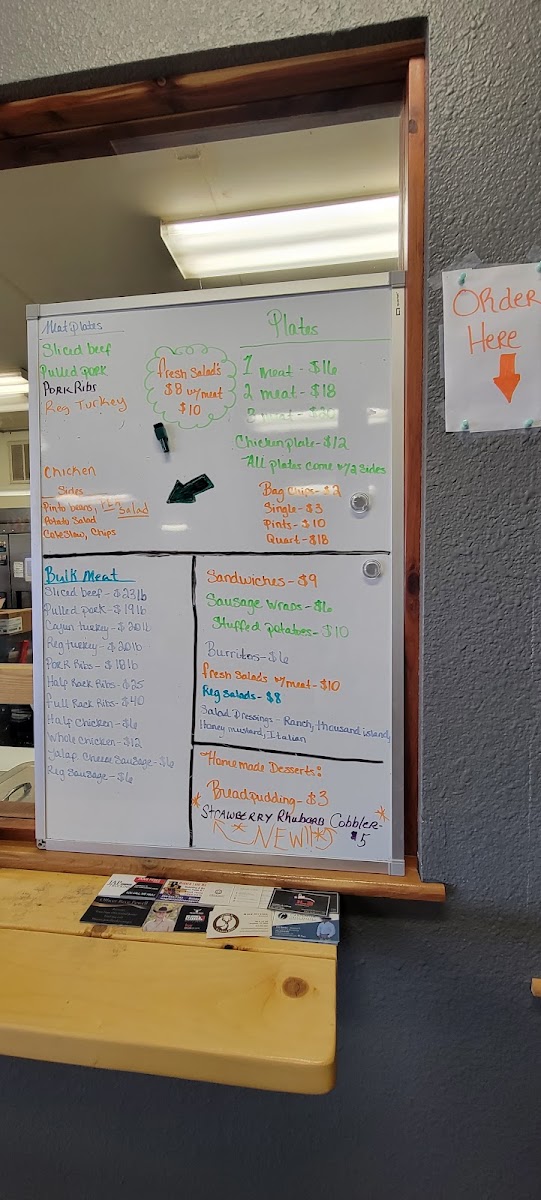 Meat plates
Sliced beef
Pulled pork
PORK Ribs
Reg Turkey
Chicken
Sides
Pinto beans, Pea Salad
Potato Salad
Coleslaw, Chips
fresh Salad's
$8 w/meat
$10
Plates
1 meat - $16
2 meat - $18
3 meat - $20
Chicken plate - $12
ALL plates come w/2 sides
Bag Chips - $2
Single - $3
Pints - $10
Quart - $18
Bulk Meat
Sliced beef - $23 lb
Pulled pork - $19 lb
Cajun turkey - $20 lb
Reg turkey - $20 lb
PORK Ribs - $18 lb
Half Rack Ribs - $25
full Rack Ribs - $40
Half Chicken - $6
Whole Chicken - $12
Jalap Cheese Sausage - $6
Reg Sausage - $6
Sandwiches - $9
Sausage Wraps - $6
Stuffed potatoes - $10
Burritos - $6
fresh Salads w/meat - $10
Reg Salads - $8
Salad Dressings - Ranch, thousand island,
Honey mustard, Italian
Homemade Desserts:
Bread pudding - $3
STRAWBERRY Rhubarb Cobbler -
$5
NEW!!
ORder
Here